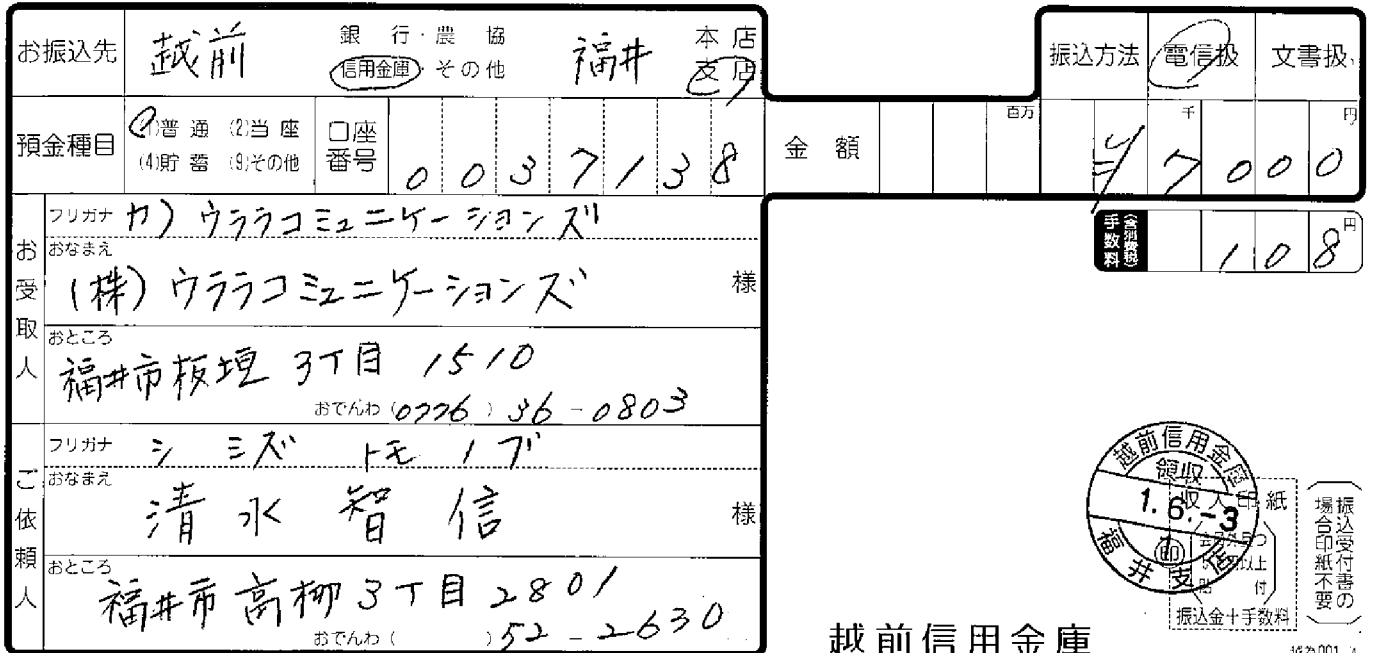 お振込先 越前 銀行・農協 信用金庫・その他 福井 本店 支店
振込方法 電信扱 文書扱
預金種目 (1)普通 (2)当座 (4)貯蓄 (9)その他
口座番号 0037138
金額 百万 千 円 ¥7000
手数料 (含消費税) 円 108
お受取人
フリガナ カ)ウララコミュニケーションズ
おなまえ (株)ウララコミュニケーションズ 様
おところ 福井市板垣3丁目1510
おでんわ(0776)36-0803
ご依頼人
フリガナ シミズ トモノブ
おなまえ 清水智信 様
おところ 福井市高柳3丁目2801
おでんわ( )52-2630
越前信用金庫
領収
1.6.-3
福井支店
収入印紙
振込金+手数料
振込受付書の場合印紙不要
越前信用金庫